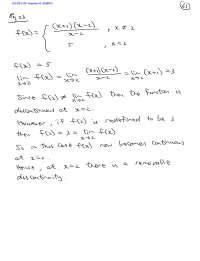 61
f(x) = { (x+1)(x-2) / x-2 , x ≠ 2
5 , x = 2
f(2) = 5
lim x→2 f(x) = lim x→2 (x+1)(x-2) / x-2 = lim x→2 (x+1) = 3
Since f(2) ≠ lim x→2 f(x) then the function is
discontinuous at x=2.
However, if f(2) is redefined to be 3
then f(2) = 3 = lim x→2 f(x)
So in this case f(x) now becomes continuous
at x=2.
Hence, at x=2 there is a removable
discontinuity